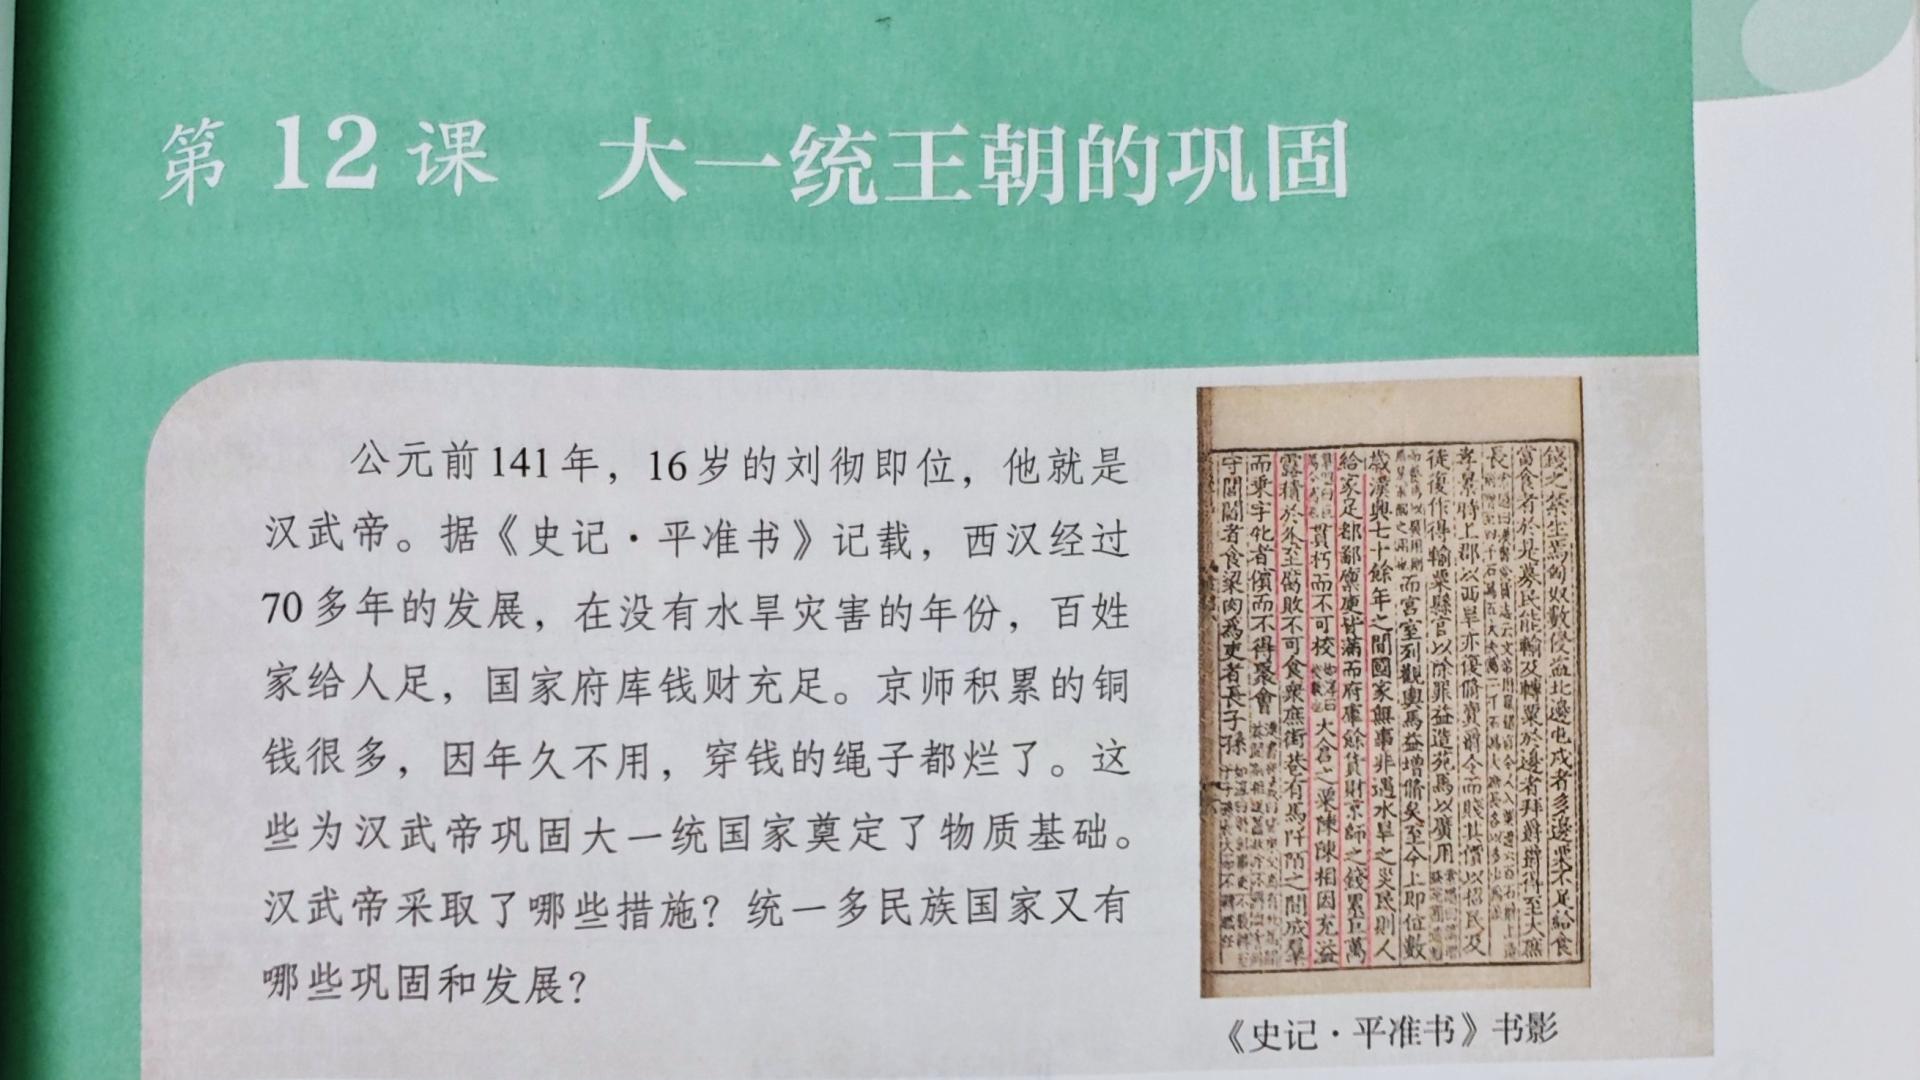 第12课 大一统王朝的巩固
公元前141年，16岁的刘彻即位，他就是
汉武帝。据《史记·平准书》记载，西汉经过
70多年的发展，在没有水旱灾害的年份，百姓
家给人足，国家府库钱财充足。京师积累的铜
钱很多，因年久不用，穿钱的绳子都烂了。这
些为汉武帝巩固大一统国家奠定了物质基础。
汉武帝采取了哪些措施？统一多民族国家又有
哪些巩固和发展？
錢之祭生焉匈奴數侵盜北邊屯戍者多邊粟不足給食
當食者於是募民能輸及轉粟於邊者拜爵爵得至大庶
長
孝景時上郡以西旱亦復脩賣爵令而賤其價以招民及
徒復作得輸粟縣官以除罪益造苑馬以廣用
而宮室列觀輿馬益增脩矣至今上即位數
歲漢興七十餘年之間國家無事非遇水旱之災民則人
給家足都鄙廩庾皆滿而府庫餘貨財京師之錢累巨萬
貫朽而不可校
大倉之粟陳陳相因充溢
露積於外至腐敗不可食衆庶街巷有馬阡陌之間成羣
而乘字牝者儐而不得聚會
守閭閻者食粱肉爲吏者長子孫
《史记·平准书》书影